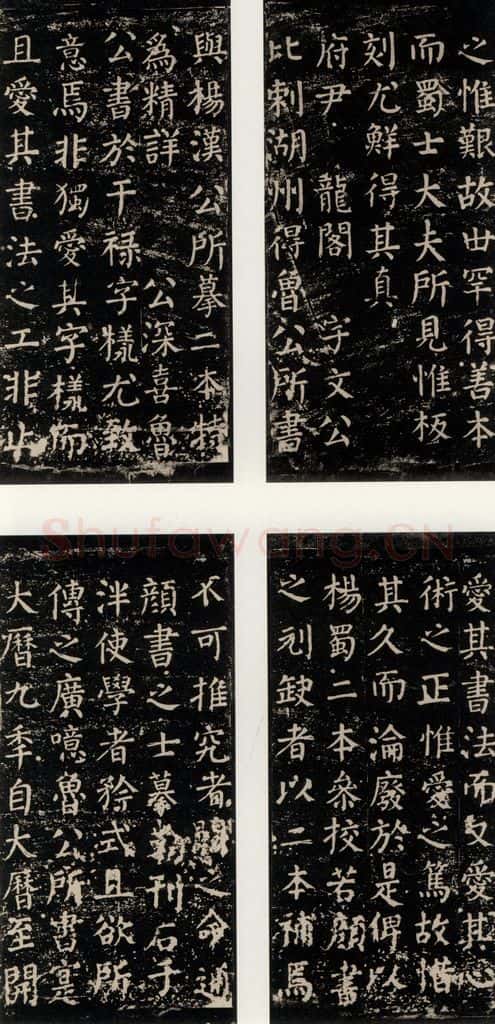 之惟艱故世罕得善本
而蜀士大夫所見惟板
刻尤鮮得其真
府尹 龍閣 宇文公
比刺湖州得魯公所書
與楊漢公所摹二本特
為精詳 公深喜魯
公書於干禄字樣尤致
意焉非獨愛其字樣而
且愛其書法之工非止
愛其書法而又愛其心
術之正惟愛之篤故惜
其久而淪廢於是俾以
楊蜀二本叅校若顔書
之刓缺者以二本補焉
不可推究者闕之命通
顔書之士摹勒刊石于
泮使學者矜式且欲所
傳之廣噫魯公所書寔
大曆九季自大曆至開
Shufawang.CN